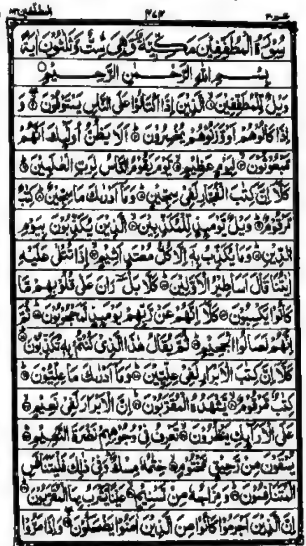 سُورَةُ الْمُطَفِّفِينَ مَكِّيَّةٌ وَهِيَ سِتٌّ وَثَلٰثُونَ اٰيَةً
بِسْمِ اللّٰهِ الرَّحْمٰنِ الرَّحِيْمِ
وَيْلٌ لِّلْمُطَفِّفِيْنَ الَّذِيْنَ اِذَا اكْتَالُوْا عَلَى النَّاسِ يَسْتَوْفُوْنَ وَ
اِذَا كَالُوْهُمْ اَوْ وَّزَنُوْهُمْ يُخْسِرُوْنَ اَلَا يَظُنُّ اُولٰٓئِكَ اَنَّهُمْ
مَّبْعُوْثُوْنَ لِيَوْمٍ عَظِيْمٍ يَّوْمَ يَقُوْمُ النَّاسُ لِرَبِّ الْعٰلَمِيْنَ
كَلَّآ اِنَّ كِتٰبَ الْفُجَّارِ لَفِيْ سِجِّيْنٍ وَمَآ اَدْرٰىكَ مَا سِجِّيْنٌ كِتٰبٌ
مَّرْقُوْمٌ وَيْلٌ يَّوْمَئِذٍ لِّلْمُكَذِّبِيْنَ الَّذِيْنَ يُكَذِّبُوْنَ بِيَوْمِ
الدِّيْنِ وَمَا يُكَذِّبُ بِهٖٓ اِلَّا كُلُّ مُعْتَدٍ اَثِيْمٍ اِذَا تُتْلٰى عَلَيْهِ
اٰيٰتُنَا قَالَ اَسَاطِيْرُ الْاَوَّلِيْنَ كَلَّا بَلْ رَانَ عَلٰى قُلُوْبِهِمْ مَّا
كَانُوْا يَكْسِبُوْنَ كَلَّآ اِنَّهُمْ عَنْ رَّبِّهِمْ يَوْمَئِذٍ لَّمَحْجُوْبُوْنَ ثُمَّ
اِنَّهُمْ لَصَالُوا الْجَحِيْمِ ثُمَّ يُقَالُ هٰذَا الَّذِيْ كُنْتُمْ بِهٖ تُكَذِّبُوْنَ
كَلَّآ اِنَّ كِتٰبَ الْاَبْرَارِ لَفِيْ عِلِّيِّيْنَ وَمَآ اَدْرٰىكَ مَا عِلِّيُّوْنَ
كِتٰبٌ مَّرْقُوْمٌ يَّشْهَدُهُ الْمُقَرَّبُوْنَ اِنَّ الْاَبْرَارَ لَفِيْ نَعِيْمٍ
عَلَى الْاَرَآئِكِ يَنْظُرُوْنَ تَعْرِفُ فِيْ وُجُوْهِهِمْ نَضْرَةَ النَّعِيْمِ
يُسْقَوْنَ مِنْ رَّحِيْقٍ مَّخْتُوْمٍ خِتٰمُهٗ مِسْكٌ وَفِيْ ذٰلِكَ فَلْيَتَنَافَسِ
الْمُتَنَافِسُوْنَ وَمِزَاجُهٗ مِنْ تَسْنِيْمٍ عَيْنًا يَّشْرَبُ بِهَا الْمُقَرَّبُوْنَ
اِنَّ الَّذِيْنَ اَجْرَمُوْا كَانُوْا مِنَ الَّذِيْنَ اٰمَنُوْا يَضْحَكُوْنَ وَاِذَا مَرُّوْا